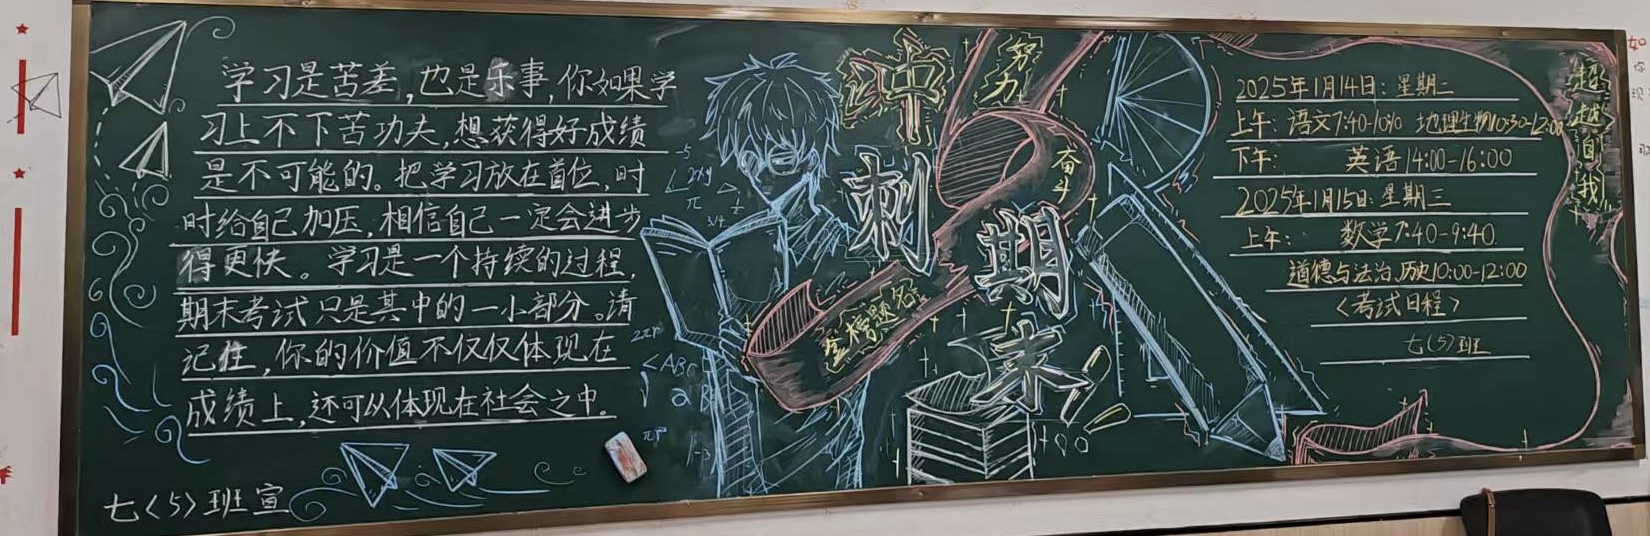 学习是苦差,也是乐事,你如果学
习上不下苦功夫,想获得好成绩
是不可能的。把学习放在首位,时
时给自己加压,相信自己一定会进步
得更快。学习是一个持续的过程,
期末考试只是其中的一小部分。请
记住,你的价值不仅仅体现在
成绩上,还可从体现在社会之中。
七<5>班宣
冲刺期末
努力
奋斗
金榜题名
2πr
<ABC
πr
100
2025年1月14日:星期二
上午:语文7:40-10:10 地理生物10:30-12:00
下午: 英语14:00-16:00
2025年1月15日:星期三
上午: 数学7:40-9:40
道德与法治、历史10:00-12:00
<考试日程>
七<5>班
超越自我
如
你
现